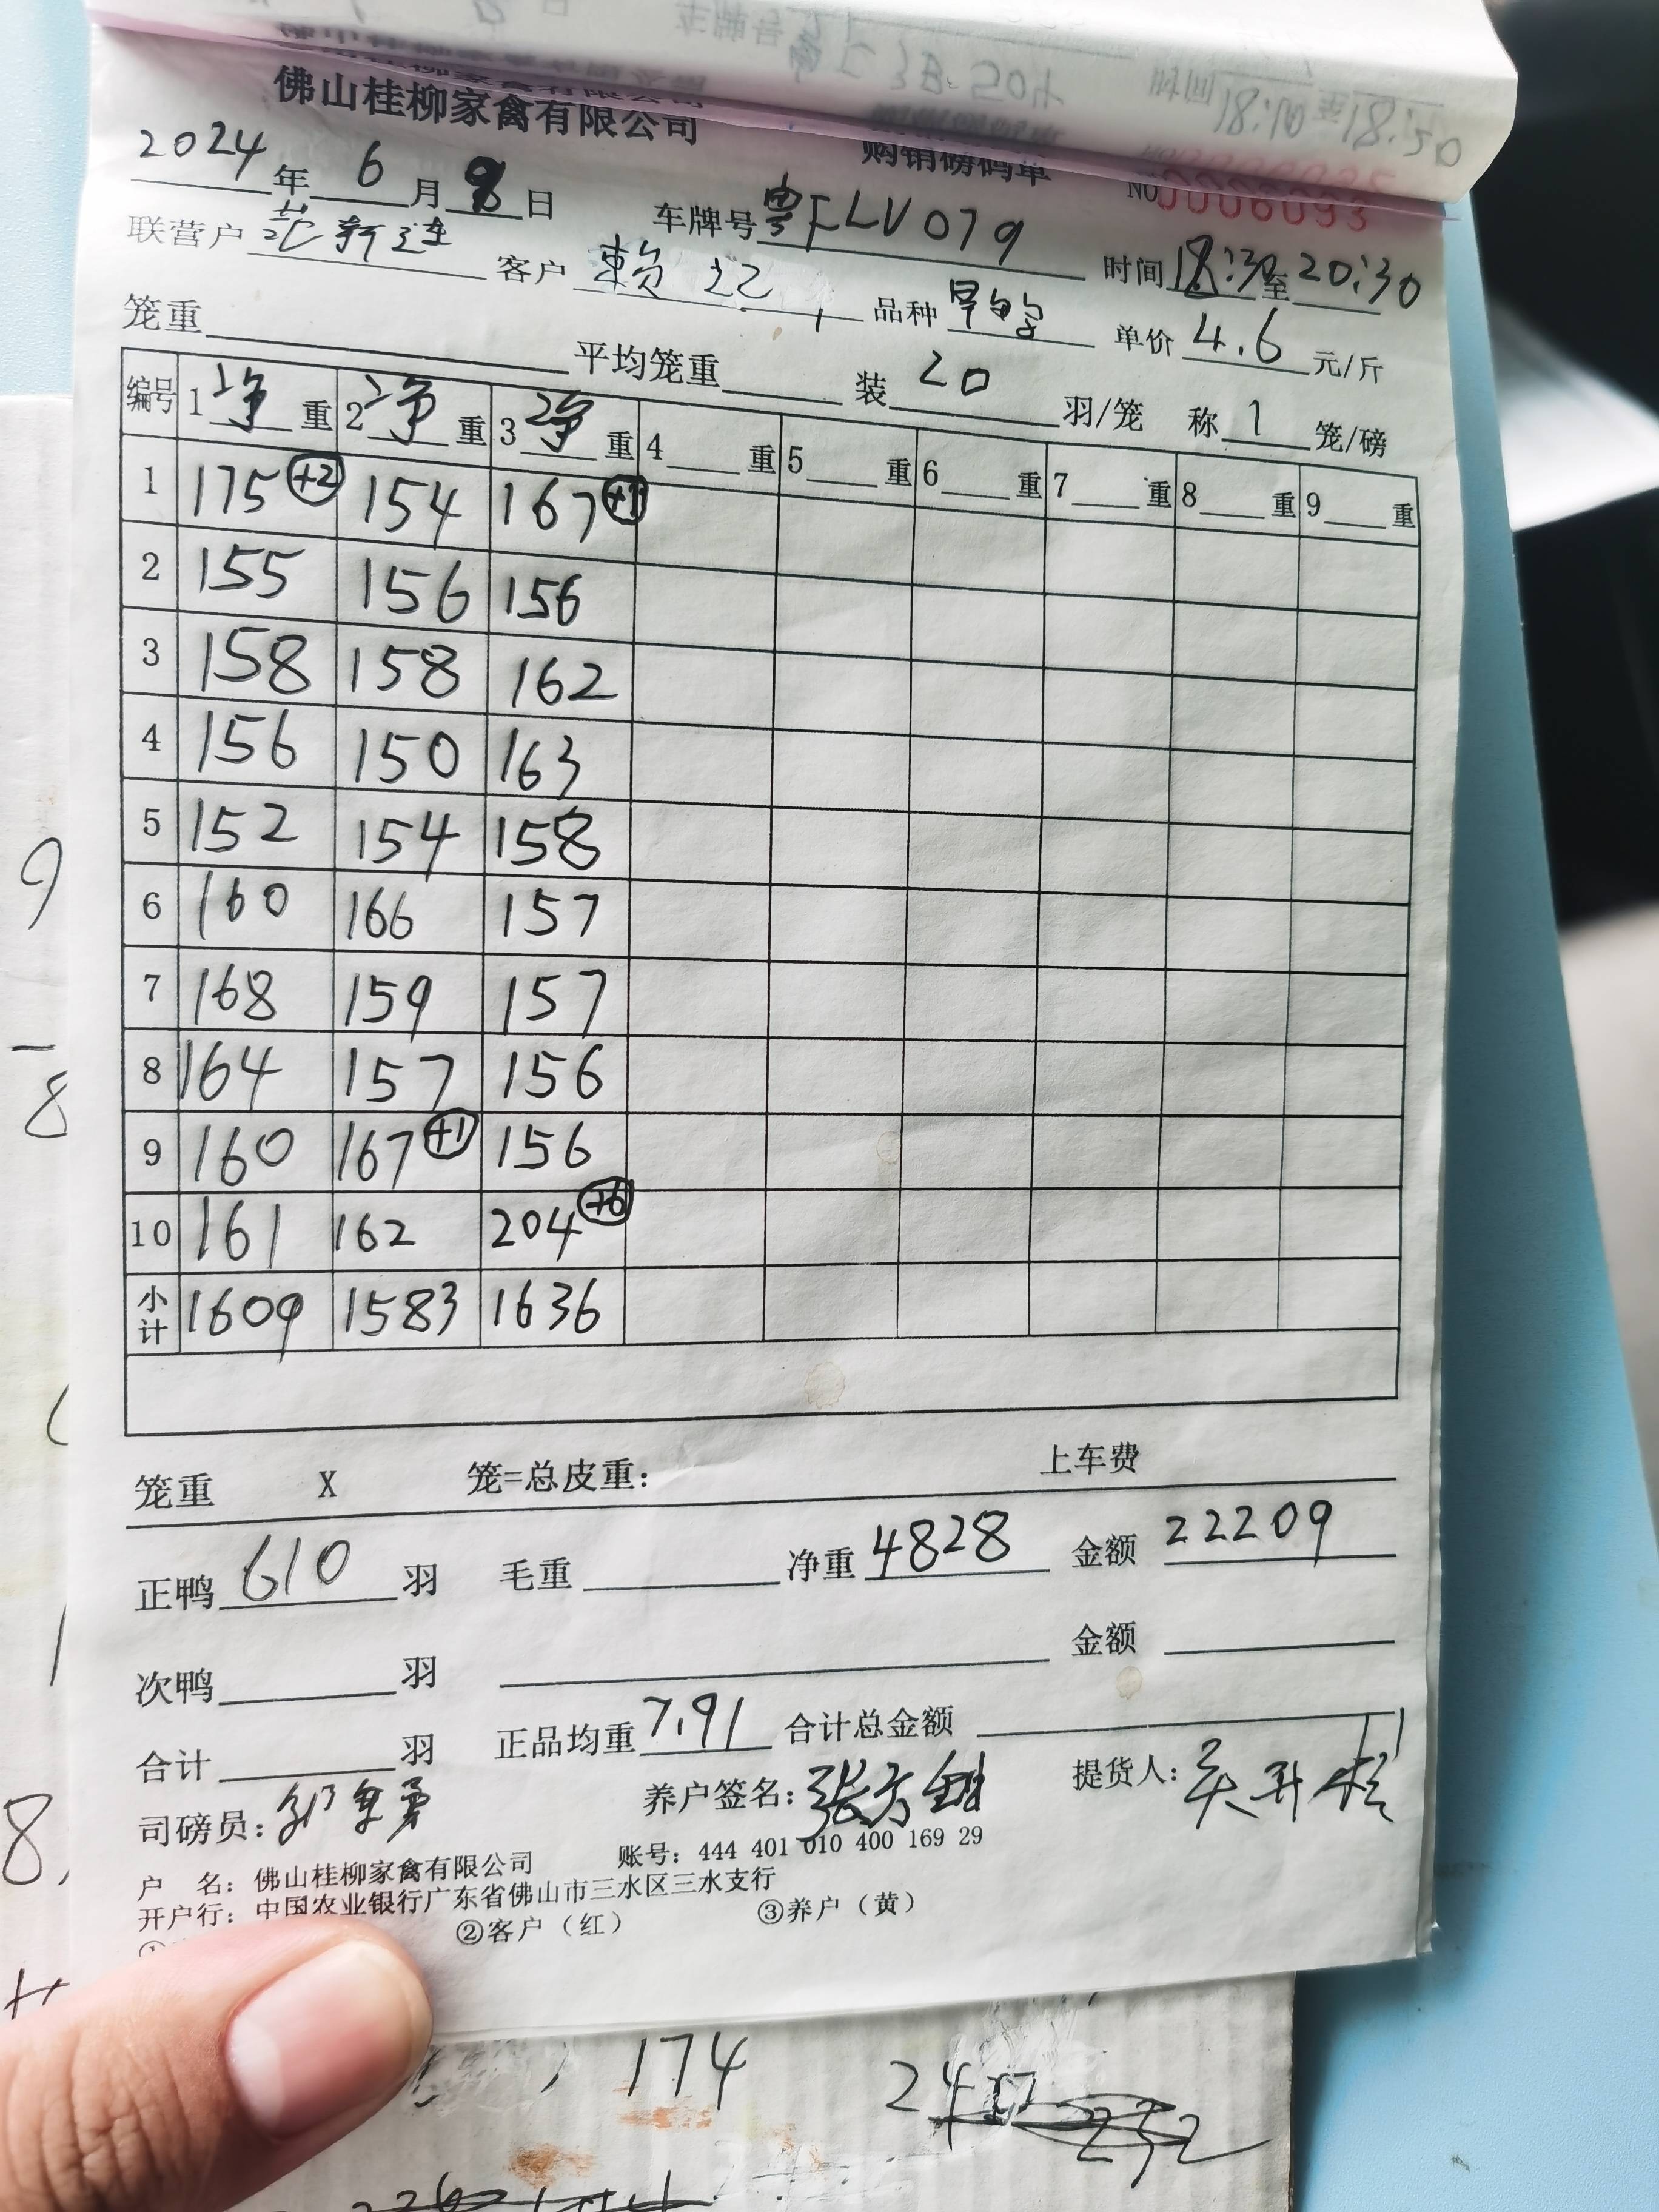 佛山桂柳家禽有限公司
购销磅码单
NO 0006093
2024年6月8日 车牌号 粤FLV079 时间 18:30至20:30
联营户 范新连 客户 赖 品种 单价 4.6 元/斤
笼重 平均笼重 装 20 羽/笼 称 1 笼/磅
编号 1净重 2净重 3净重 4重 5重 6重 7重 8重 9重
1 175 +2 154 167 +1
2 155 156 156
3 158 158 162
4 156 150 163
5 152 154 158
6 160 166 157
7 168 159 157
8 164 157 156
9 160 167 +1 156
10 161 162 204 +6
小计 1609 1583 1636
笼重 X 笼=总皮重: 上车费
正鸭 610 羽 毛重 净重 4828 金额 22209
次鸭 羽 金额
合计 羽 正品均重 7.91 合计总金额
司磅员: 养户签名: 提货人:
户 名: 佛山桂柳家禽有限公司 账号: 444 401 010 400 169 29
开户行: 中国农业银行广东省佛山市三水区三水支行
②客户(红) ③养户(黄)
174